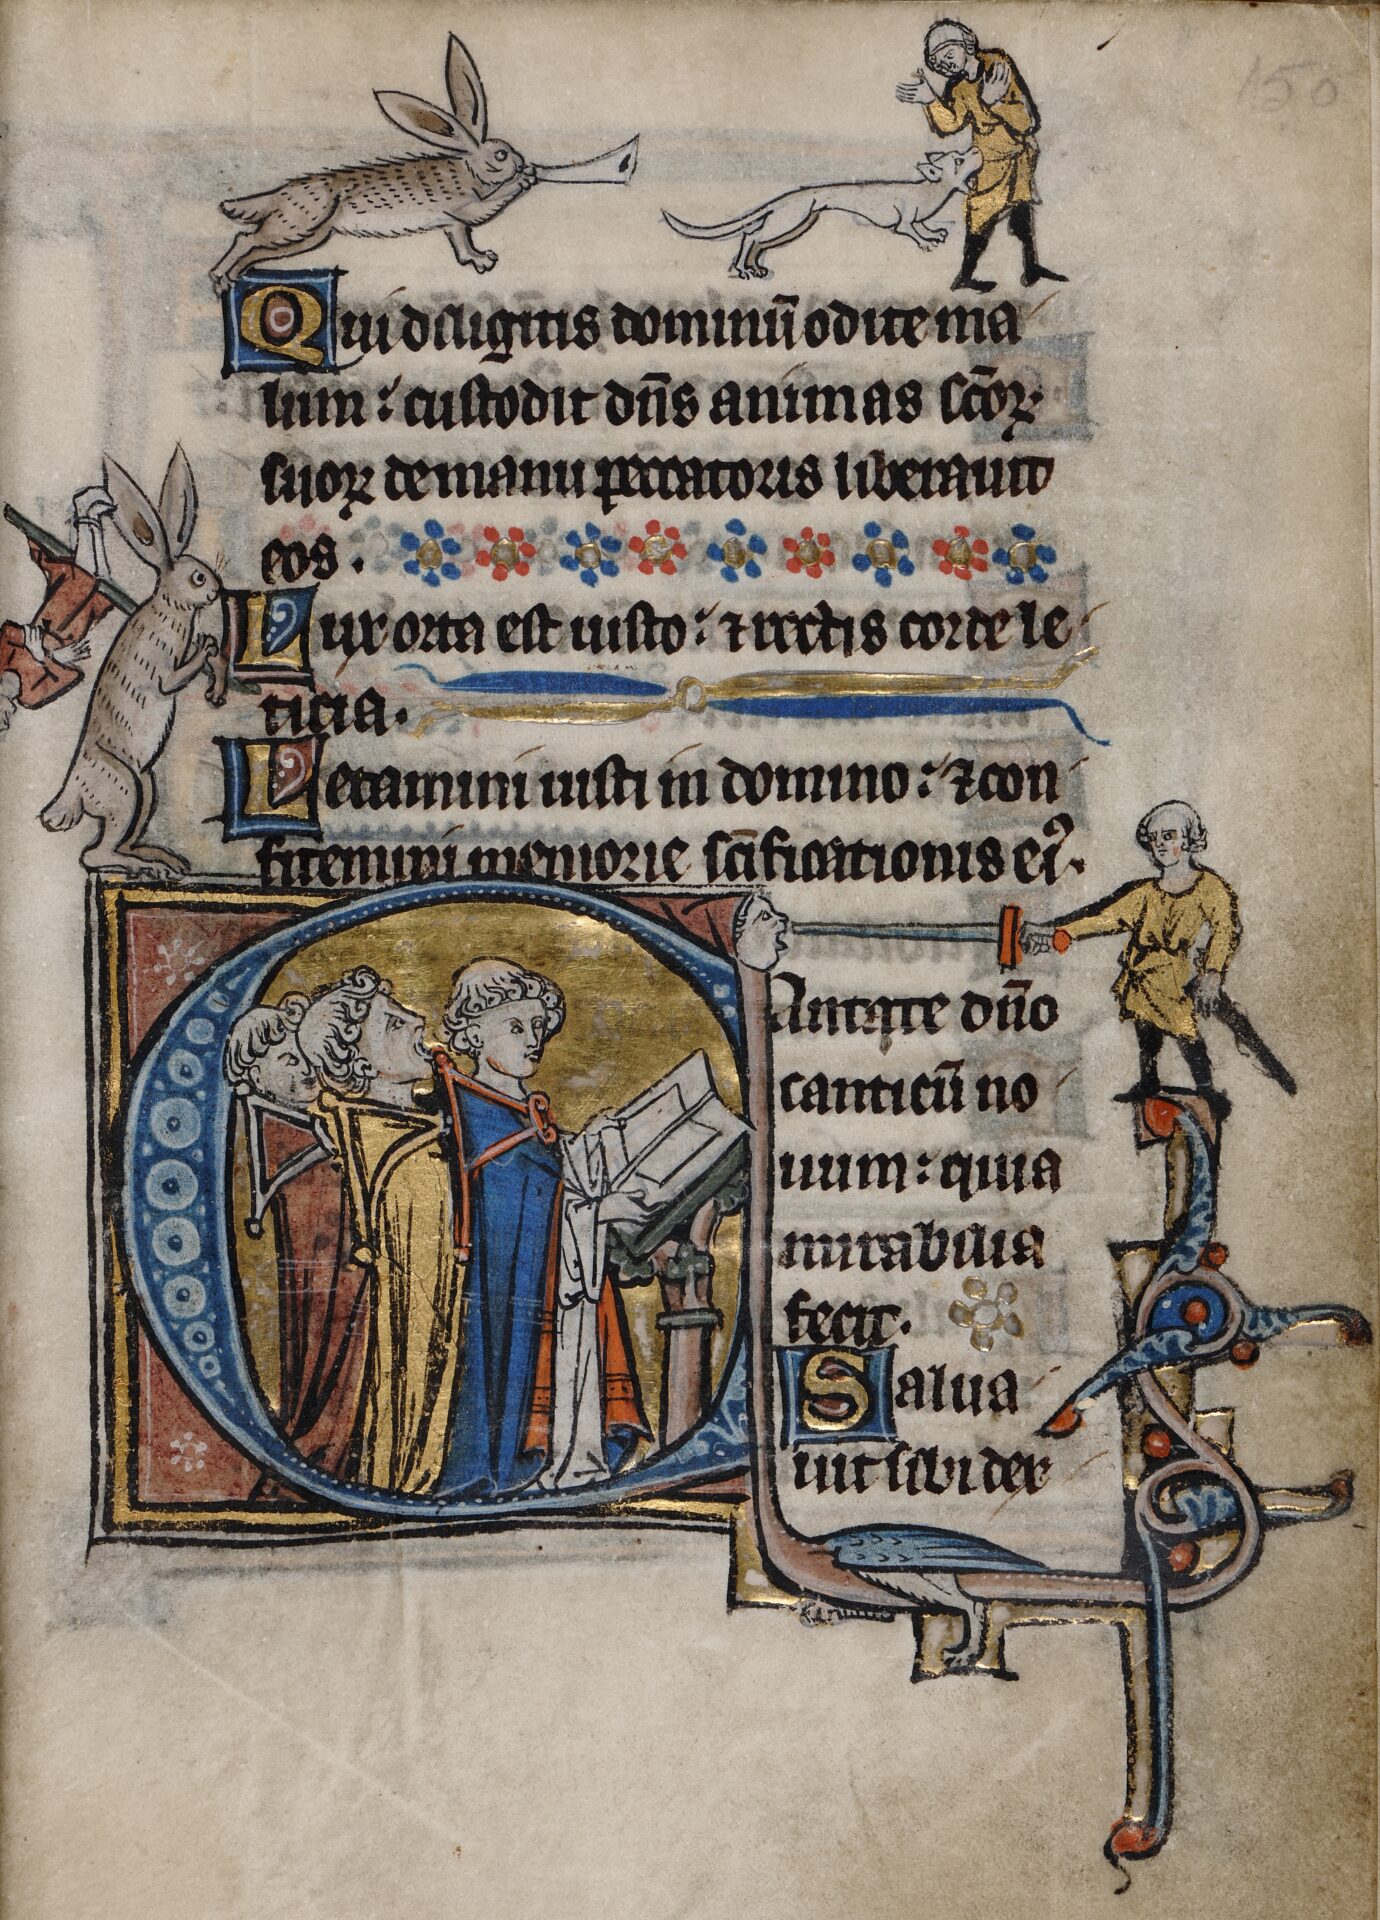 150
Qui diligitis dominū odite ma
lum : custodit dn̄s animas sc̄oꝝ
suoꝝ de manu peccatoris liberauit
eos .
Lux orta est iusto : ⁊ rectis corde le
ticia .
Letamini iusti in domino : ⁊ con
fitemini memorie sc̄ificationis eiꝰ .
Cantate dn̄o
canticū no
uum : quia
mirabilia
fecit .
Salua
uit sibi dex